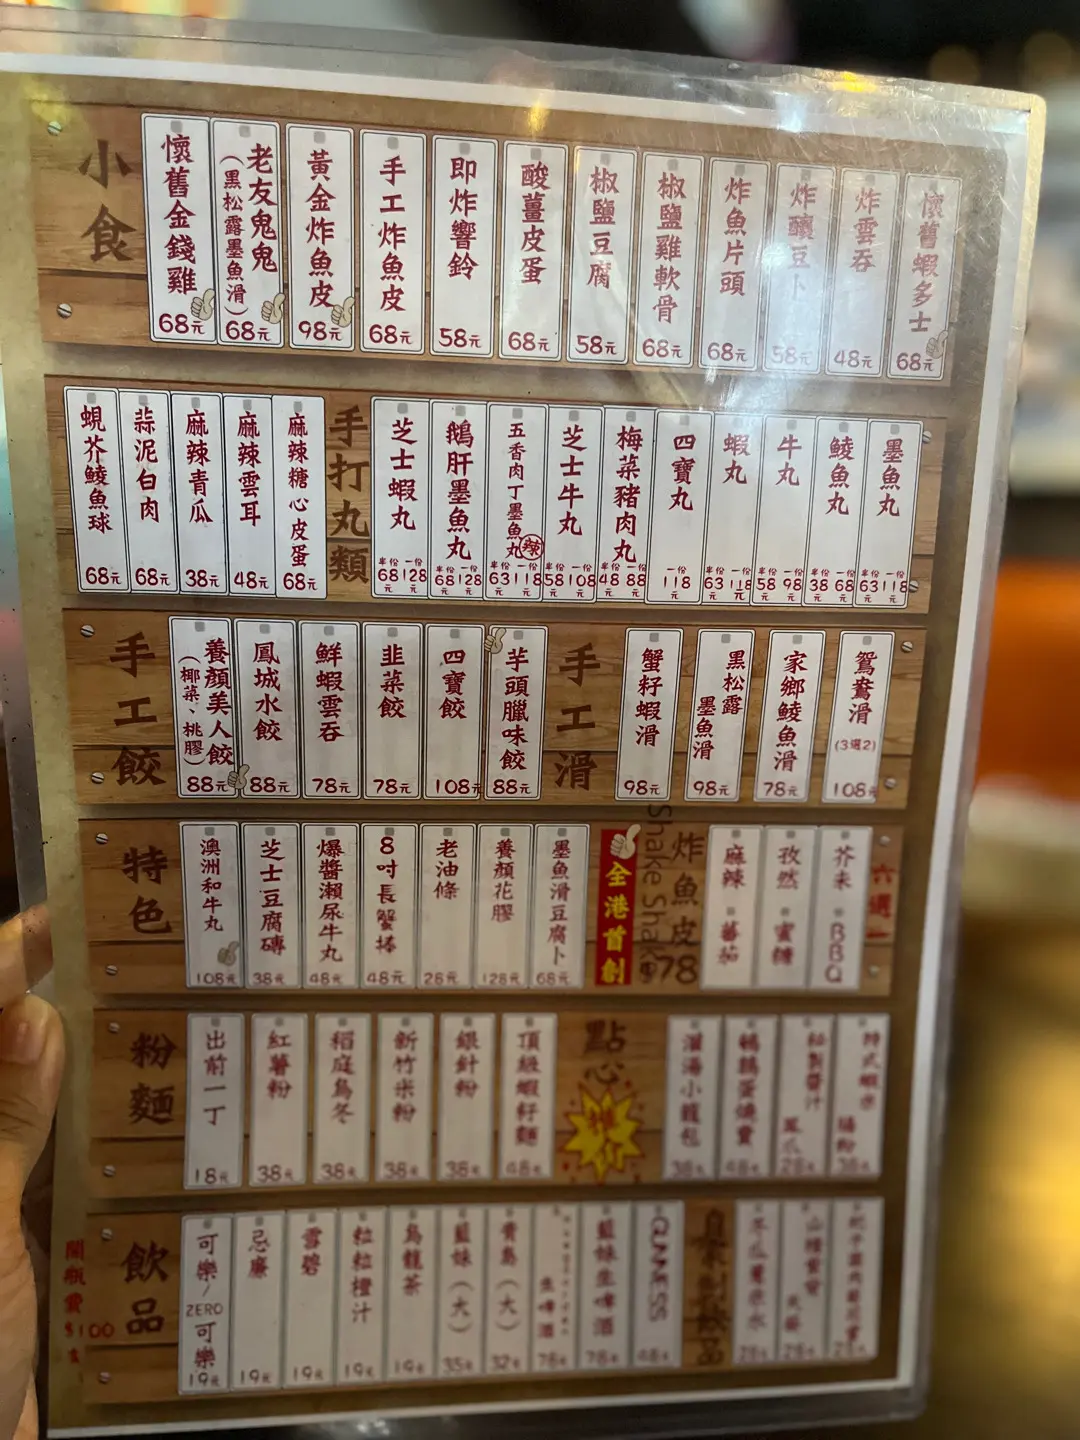 小食
懷舊金錢雞 68元
老友鬼鬼 (黑松露墨魚滑) 68元
黃金炸魚皮 98元
手工炸魚皮 68元
即炸響鈴 58元
酸薑皮蛋 68元
椒鹽豆腐 58元
椒鹽雞軟骨 68元
炸魚片頭 68元
炸釀豆卜 58元
炸雲吞 48元
懷舊蝦多士 68元
蜆芥鯪魚球 68元
蒜泥白肉 68元
麻辣青瓜 38元
麻辣雲耳 48元
麻辣糖心皮蛋 68元
手打丸類
芝士蝦丸 半份68元 一份128元
鵝肝墨魚丸 半份68元 一份128元
五香肉丁墨魚丸 辣 半份63元 一份118元
芝士牛丸 半份58元 一份108元
梅菜豬肉丸 半份48元 一份88元
四寶丸 一份118元
蝦丸 半份63元 一份118元
牛丸 半份58元 一份98元
鯪魚丸 半份38元 一份68元
墨魚丸 半份63元 一份118元
手工餃
養顏美人餃 (椰菜、桃膠) 88元
鳳城水餃 88元
鮮蝦雲吞 78元
韭菜餃 78元
四寶餃 108元
芋頭臘味餃 88元
手工滑
蟹籽蝦滑 98元
黑松露墨魚滑 98元
家鄉鯪魚滑 78元
鴛鴦滑 (3選2) 108元
特色
澳洲和牛丸 108元
芝士豆腐磚 38元
爆醬瀨尿牛丸 48元
8吋長蟹棒 48元
老油條 28元
養顏花膠 128元
墨魚滑豆腐卜 68元
全港首創
Shake Shake
炸魚皮 78
麻辣 蕃茄
孜然 蜜糖
芥末 BBQ
六選一
粉麵
出前一丁 18元
紅薯粉 38元
稻庭烏冬 38元
新竹米粉 38元
銀針粉 38元
頂級蝦籽麵 48元
點心
灌湯小籠包 38元
鵪鶉蛋燒賣 48元
秘製醬汁鳳爪 28元
腸粉 38元
飲品
可樂/ZERO可樂 19元
忌廉 19元
雪碧 19元
粒粒橙汁 19元
烏龍茶 19元
藍妹(大) 35元
青島(大) 32元
生啤酒 78元
藍妹生啤酒 78元
48元
28元
28元
28元
開瓶費
$100